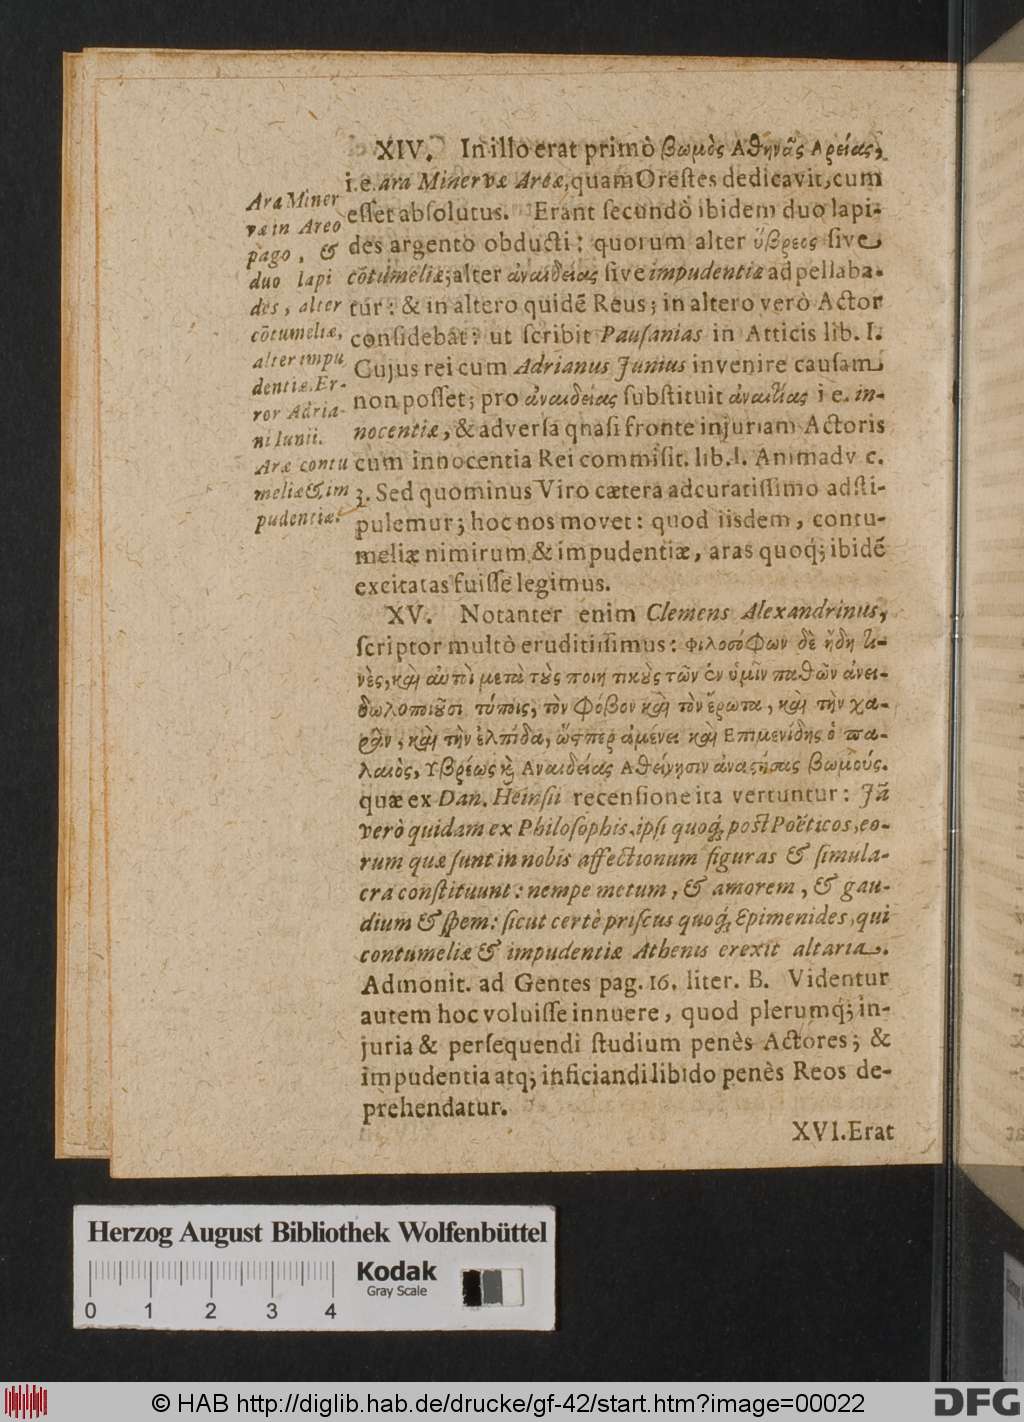 XIV. In illo erat primò βωμὸς Αθηνᾶς Αρείας,
i.e. ara Minervæ Areæ, quam Orestes dedicavit, cum
esset absolutus. Erant secundò ibidem duo lapi-
des argento obducti: quorum alter ὕβρεος sive
cōtumeliæ; alter ἀναιδείας sive impudentiæ adpellaba-
tur: & in altero quidē Reus; in altero verò Actor
considebāt: ut scribit Pausanias in Atticis lib. I.
Cujus rei cum Adrianus Junius invenire causam
non posset; pro ἀναιδείας substituit ἀναιτίας i e. in-
nocentiæ, & adversâ quasi fronte injuriam Actoris
cum innocentia Rei commisit. lib. I. Animadv c.
3. Sed quominus Viro cætera adcuratissimo adsti-
pulemur; hoc nos movet: quod iisdem, contu-
meliæ nimirum & impudentiæ, aras quoq; ibidē
excitatas fuisse legimus.
Ara Miner
væ in Areo
pago, &
duo lapi
des, alter
cōtumeliæ,
alter impu
dentiæ. Er-
ror Adria-
ni Iunii.
Aræ contu
meliæ & im
pudentiæ.
XV. Notanter enim Clemens Alexandrinus,
scriptor multò eruditissimus: φιλοσόφων δὲ ἤδη τι-
νὲς, καὶ αὐτοὶ μετὰ τοὺς ποιητικοὺς τῶν ἐν ὑμῖν παθῶν ἀνει-
δωλοποιοῦσι τύποις, τὸν φόβον καὶ τὸν ἔρωτα, καὶ τὴν χα-
ρὰν, καὶ τὴν ἐλπίδα, ὥσπερ ἀμένει καὶ Επιμενίδης ὁ πα-
λαιὸς, Υβρέως καὶ Αναιδείας Αθείνησιν ἀναστήσας βωμούς.
quæ ex Dan. Heinsii recensione ita vertuntur: Jā
verò quidam ex Philosophis, ipsi quoq; post Poëticos, eo-
rum quæ sunt in nobis affectionum figuras & simula-
cra constituunt: nempe metum, & amorem, & gau-
dium & spem: sicut certè priscus quoq; Epimenides, qui
contumeliæ & impudentiæ Athenis erexit altaria.
Admonit. ad Gentes pag. 16. liter. B. Videntur
autem hoc voluisse innuere, quod plerumq; in-
juria & persequendi studium penès Actores; &
impudentia atq; inficiandi libido penès Reos de-
prehendatur.
XVI. Erat
Herzog August Bibliothek Wolfenbüttel
Kodak
Gray Scale
0 1 2 3 4
© HAB http://diglib.hab.de/drucke/gf-42/start.htm?image=00022
DFG